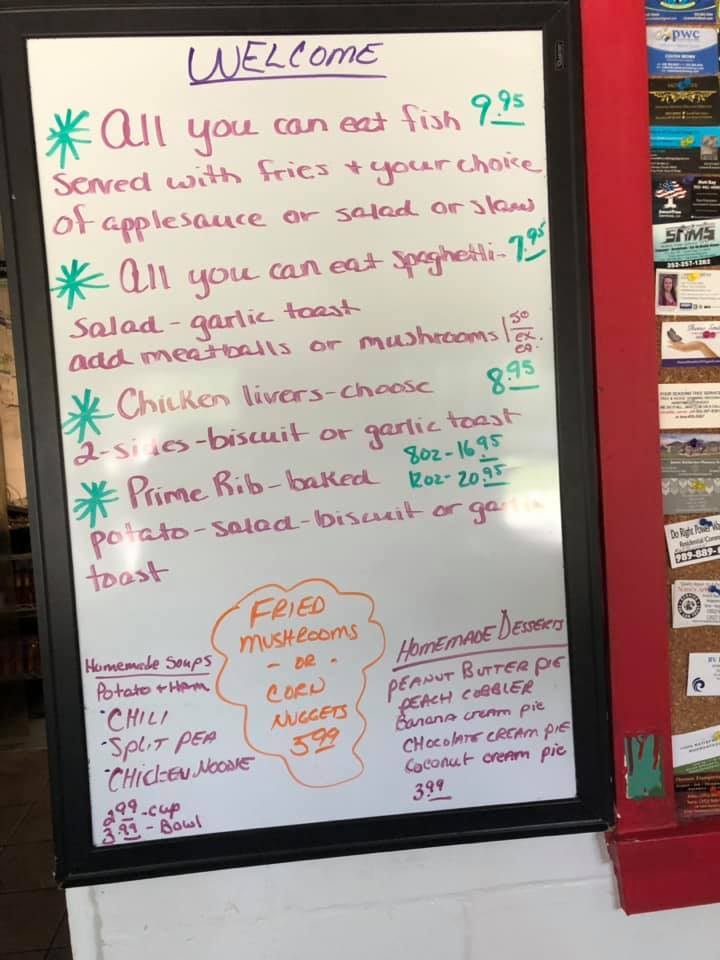 WELCOME
* All you can eat fish 9.95
served with fries + your choice
of applesauce or salad or slaw
* All you can eat spaghetti - 7.95
salad - garlic toast
add meatballs or mushrooms 1.50 ex. ea.
* Chicken livers - choose 8.95
2 - sides - biscuit or garlic toast
* Prime Rib - baked 8oz - 16.95
12oz - 20.95
potato - salad - biscuit or garlic
toast
FRIED
MUSHROOMS
- OR -
CORN
NUGGETS
5.99
Homemade Soups
Potato + Ham
CHILI
SPLIT PEA
CHICKEN NOODLE
2.99 - cup
3.99 - Bowl
HOMEMADE DESSERTS
PEANUT BUTTER PIE
PEACH COBBLER
Banana cream pie
CHOCOLATE CREAM PIE
Coconut cream pie
3.99
pwc
SRIMS
352-257-1282
Do Right Power
989-889-